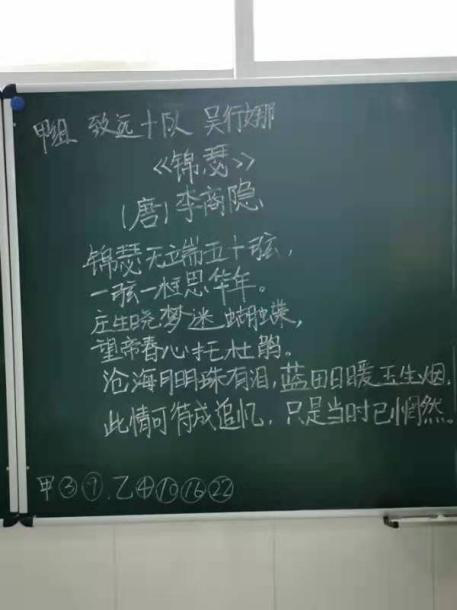 甲组 致远十队 吴行娜
《锦瑟》
(唐)李商隐
锦瑟无端五十弦,
一弦一柱思华年。
庄生晓梦迷蝴蝶,
望帝春心托杜鹃。
沧海月明珠有泪,蓝田日暖玉生烟.
此情可待成追忆,只是当时已惘然。
甲③⑦.乙④⑩⑯㉒